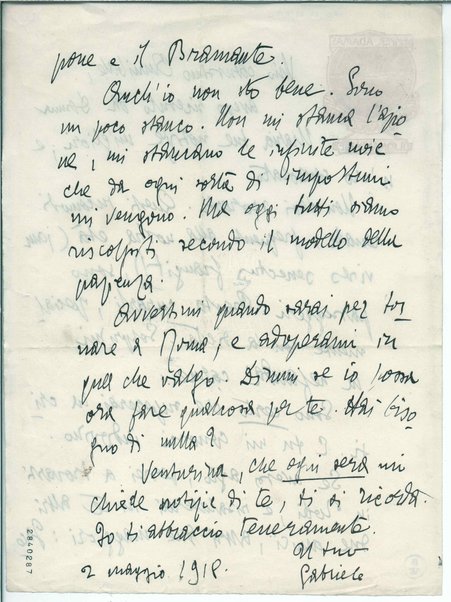 pone e il Bramante.
Anch'io non sto bene. Sono
un poco stanco. Non mi stanca l'azio
ne, mi stancano le infinite noie
che da ogni sorta di importuni
mi vengono. Ma oggi tutti siamo
riscolpiti secondo il modello della
pazienza.
Avvertimi quando sarai per tor
nare a Roma, e adoperami in
quel che valgo. Dimmi se io possa
ora fare qualcosa per te. Hai biso
gno di nulla?
Venturina, che ogni sera mi
chiede notizie di te, ti si ricorda.
Io ti abbraccio teneramente.
Il tuo
2 maggio 1918. Gabriele
2840287